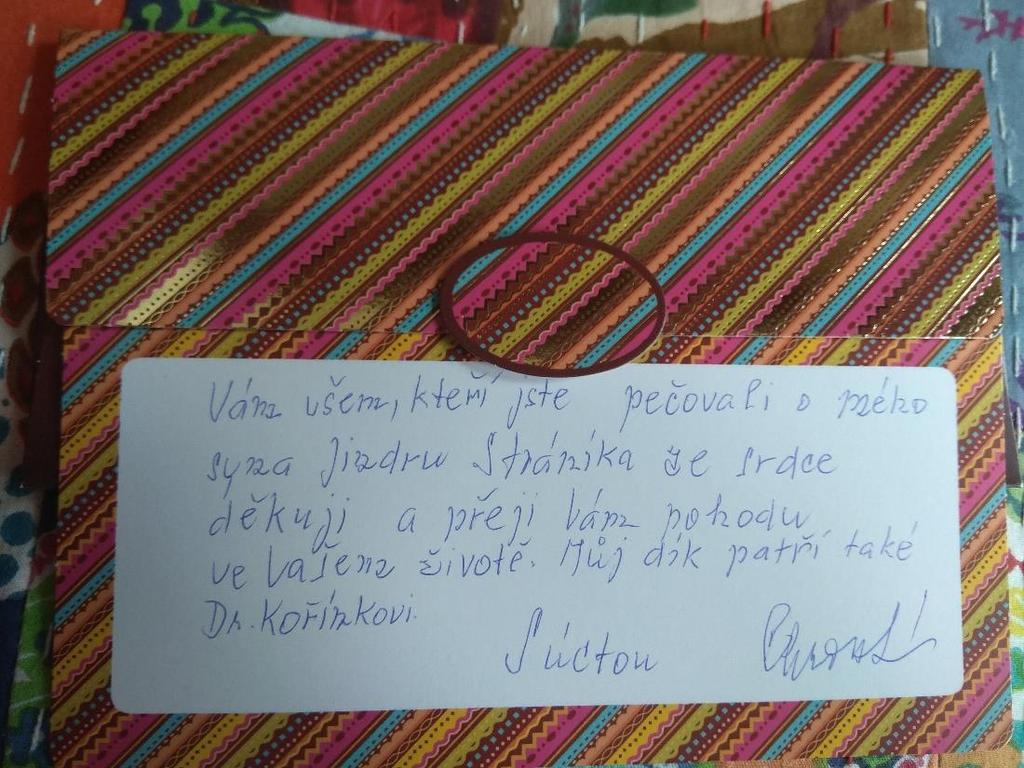 Vám všem, kteří jste pečovali o mého
syna Jindru Stráníka ze srdce
děkuji a přeji Vám pohodu
ve Vašem životě. Můj dík patří také
Dr. Kořínkovi.
S úctou